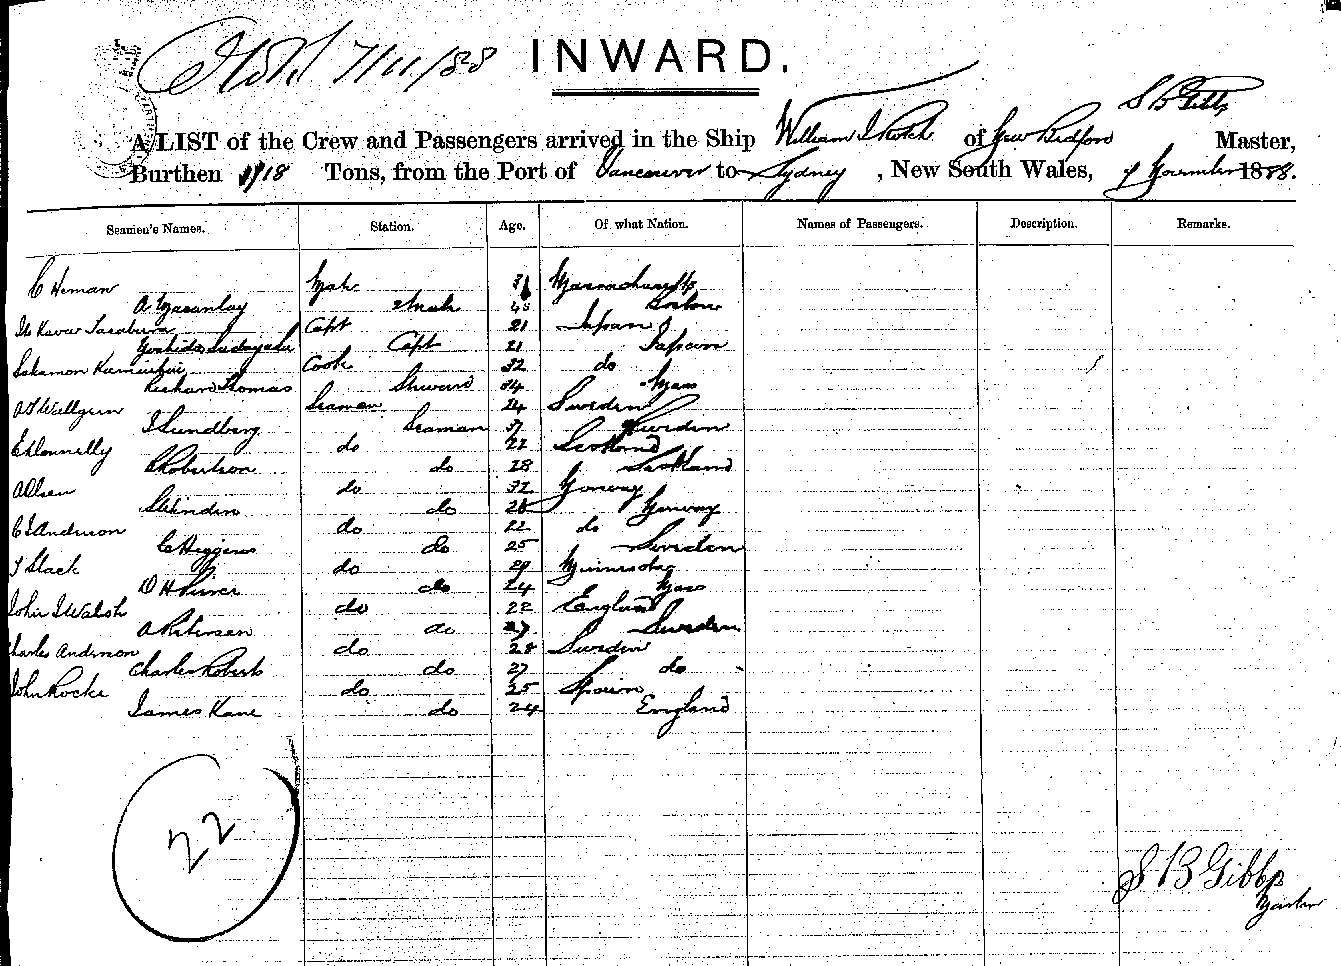 7/11/88 INWARD.
S B Gibbs
A LIST of the Crew and Passengers arrived in the Ship William of New Bedford Master,
Burthen Tons, from the Port of Vancouver to Sydney, New South Wales, 7 November 1888.
Seamen's Names. Station. Age. Of what Nation. Names of Passengers. Description. Remarks.
C Heman Mate Massachusetts
A Boston
Capt 21 Japan
Capt 21 Japan
Cook 32 do
Richard Thomas Steward 34 Mass
A Wallgren Seaman 24 Sweden
J Sundberg Seaman 37 Sweden
E Connelly do 22 Scotland
C Robertson do 28 Scotland
A Olsen do 32 Norway
do 28 Norway
C E Anderson do 22 do
C Higgins do 25 Sweden
T Slack do 29 Minnesota
D H do 24 Mass
John J Walsh do 22 England
A Petersen do 27 Sweden
Charles Anderson do 28 Sweden
Charles Roberts do 27 do
John Rocke do 25 Spain
James Kane do 24 England
22
S B Gibbs
Master